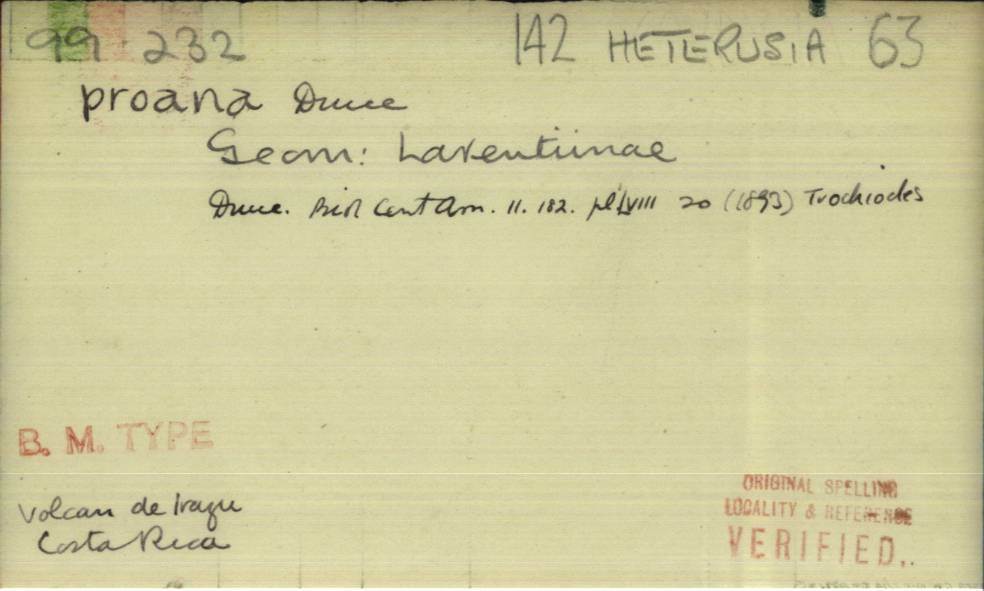 99 232 142 HETERUSIA 63
proana Druce
Geom: Larentiinae
Druce. Biol Cent Am. II. 182. pl LVIII 20 (1893) Trochiodes
B. M. TYPE
Volcan de Irazu
Costa Rica
ORIGINAL SPELLING
LOCALITY & REFERENCE
VERIFIED..